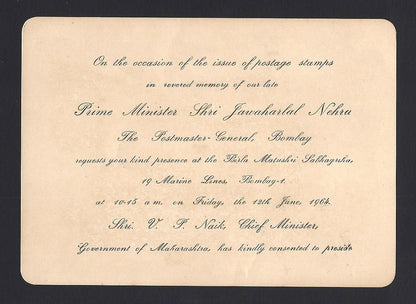 On the occasion of the issue of postage stamps
in revered memory of our late
Prime Minister Shri Jawaharlal Nehru
The Postmaster-General, Bombay
requests your kind presence at the Birla Matushri Sabhagriha,
19 Marine Lines, Bombay-1.
at 10-15 a.m. on Friday, the 12th June, 1964.
Shri. V. P. Naik, Chief Minister,
Government of Maharashtra, has kindly consented to preside